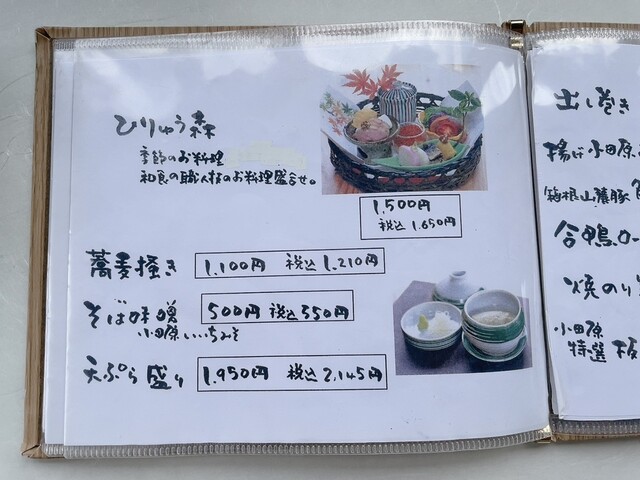 ひりゅう森
季節のお料理
和食の職人技のお料理盛合せ。
1,500円
税込 1.650円
蕎麦掻き 1.100円 税込 1.210円
そば味噌 500円 税込 550円
小田原いいちみそ
天ぷら盛り 1.950円 税込 2,145円
出し巻き
揚げ小田原
箱根山麓豚
合鴨ロー
焼のり
小田原
特選 板